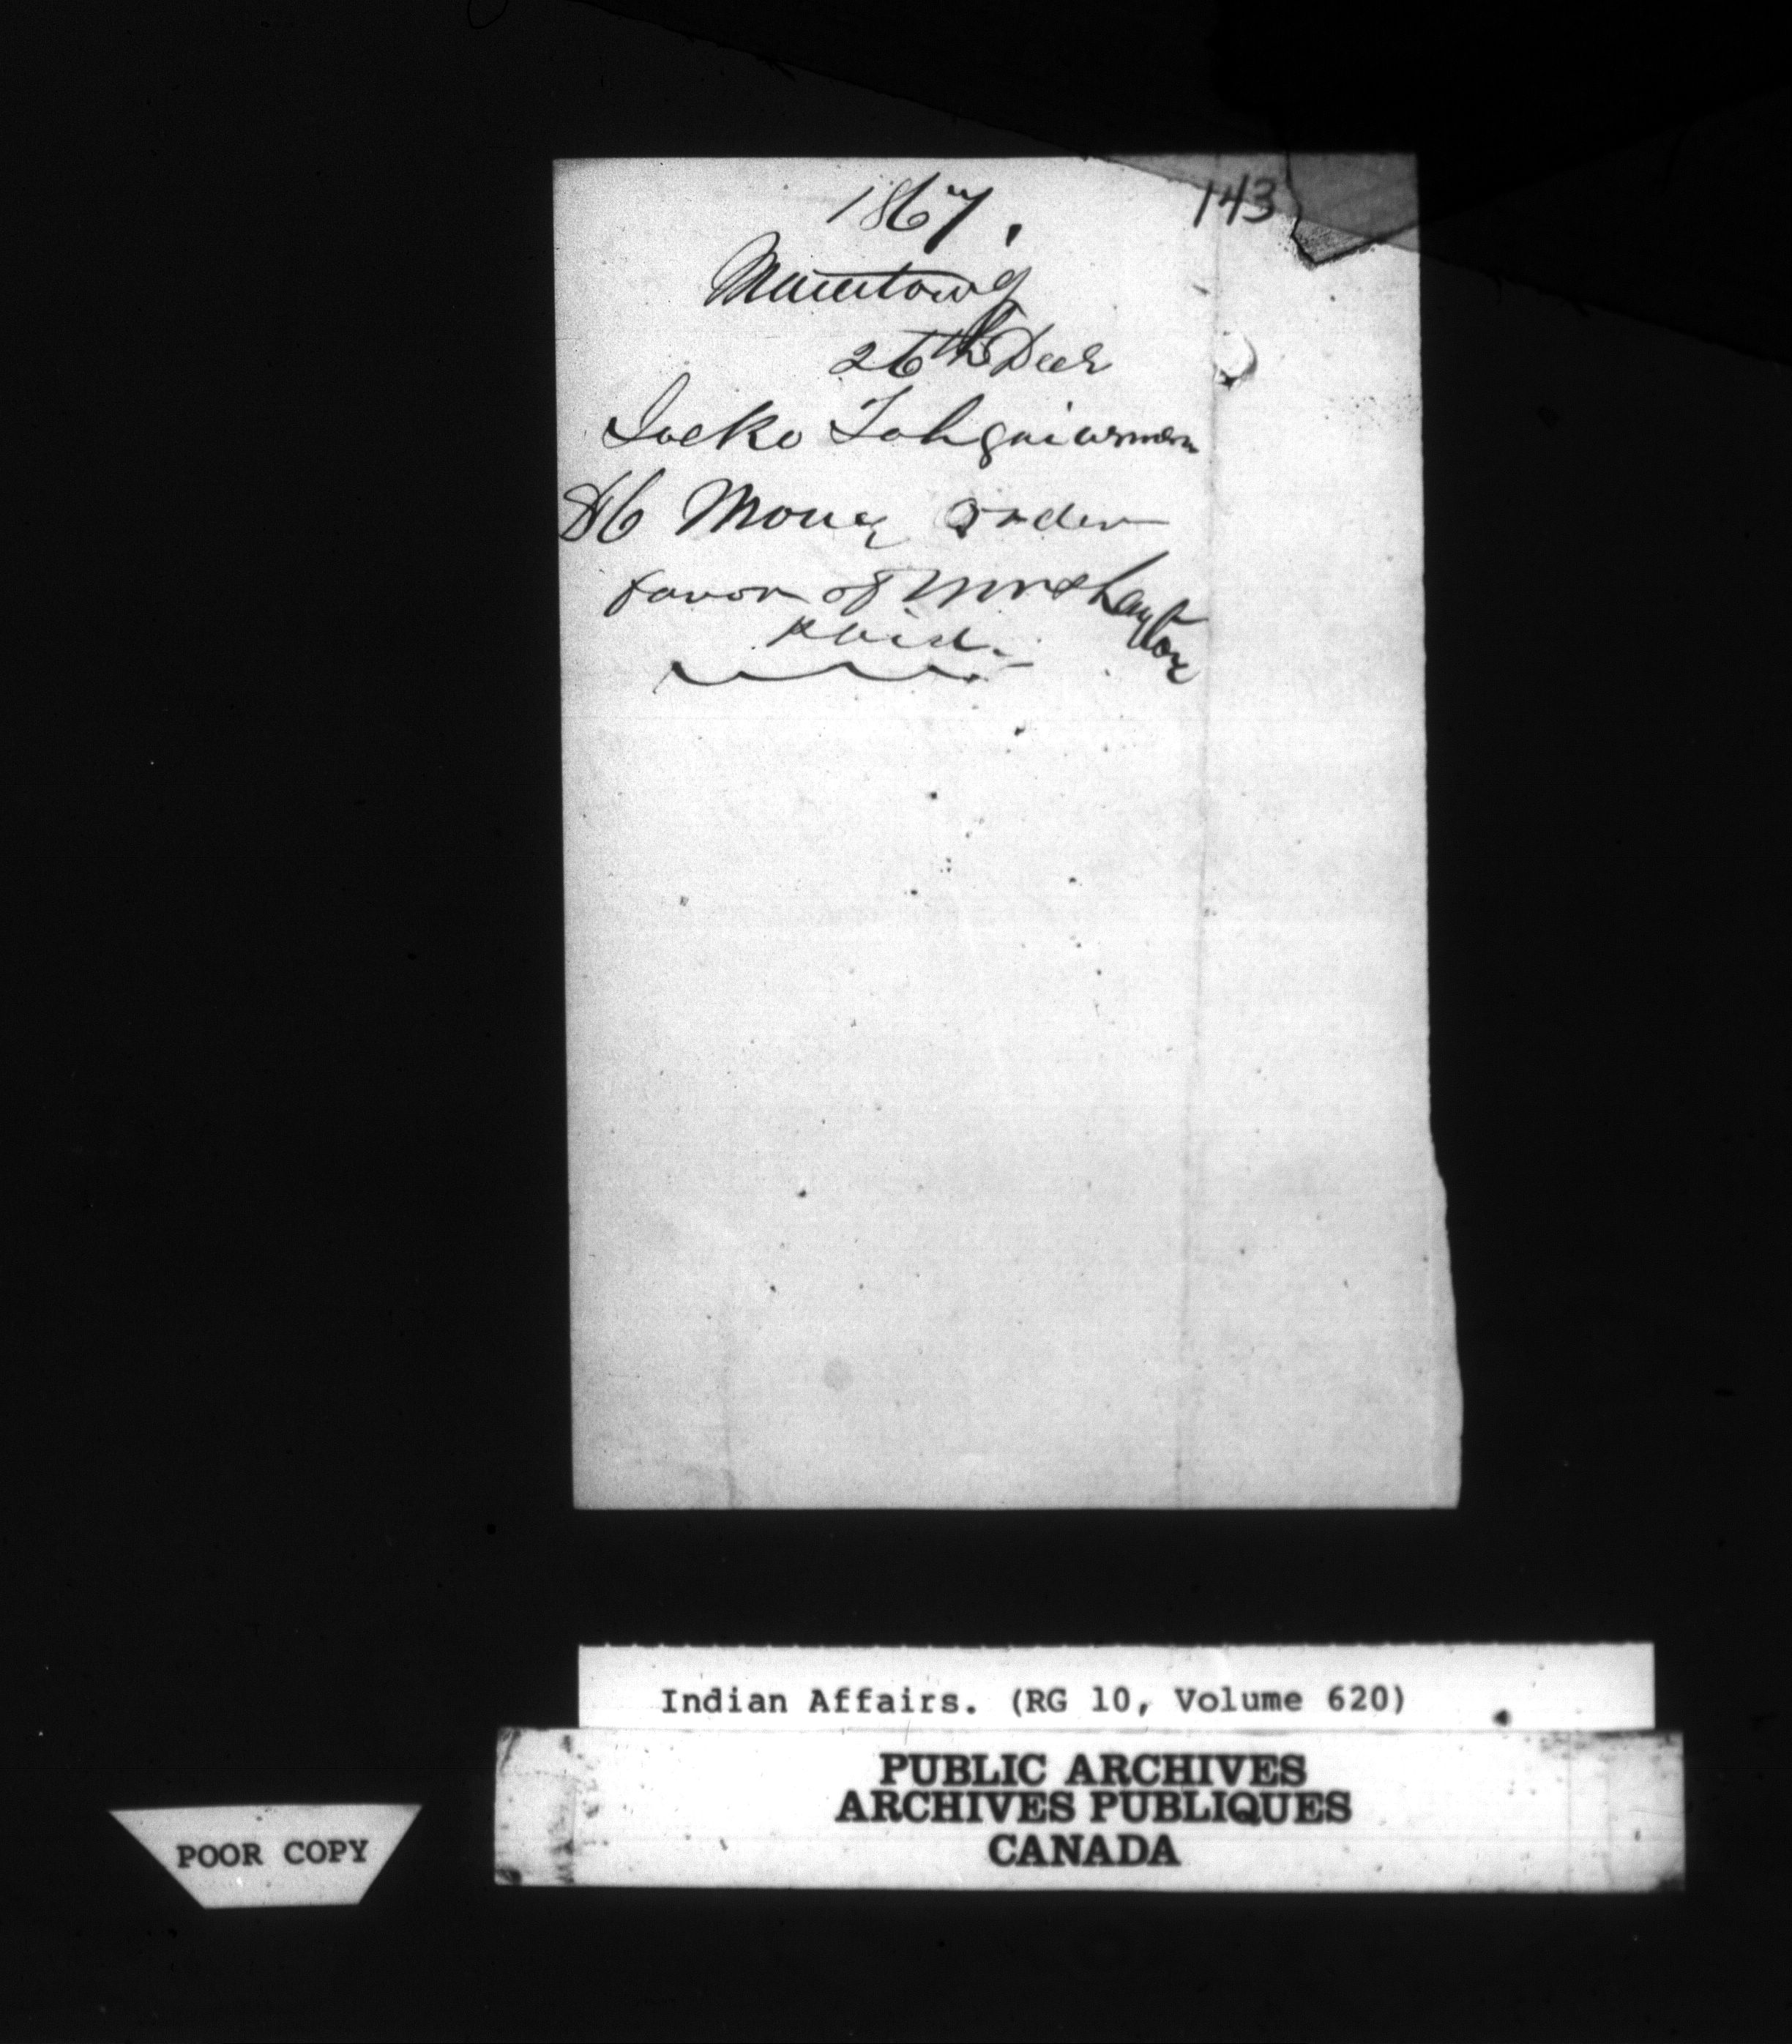 143
1867.
Manitowg
26th Decr
Jocko
$6 Money Order
favor of Mrs Layton
Paid.
Indian Affairs. (RG 10, Volume 620)
PUBLIC ARCHIVES
ARCHIVES PUBLIQUES
CANADA
POOR COPY